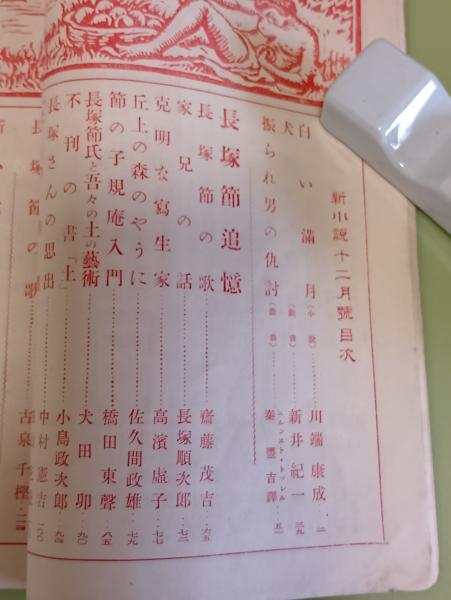 新小説十二月號目次
白い滿月（小說）……川端康成…二
犬（戲曲）……新井紀一…三九
振られ男の仇討（戲曲）……エルンスト・トッレル 秦豐吉譯…五一
長塚節追憶
長塚節の歌……齋藤茂吉…六五
家兄の話……長塚順次郎…七二
克明な寫生家……高濱虛子…七七
丘上の森のやうに……佐久間政雄…七九
節の子規庵入門……橋田東聲…八五
長塚節氏と吾々の土の藝術……犬田卯…九〇
不刊の書「土」……小島政次郎…九四
長塚さんの思出……中村憲吉…一〇〇
長塚節の歌……古泉千樫